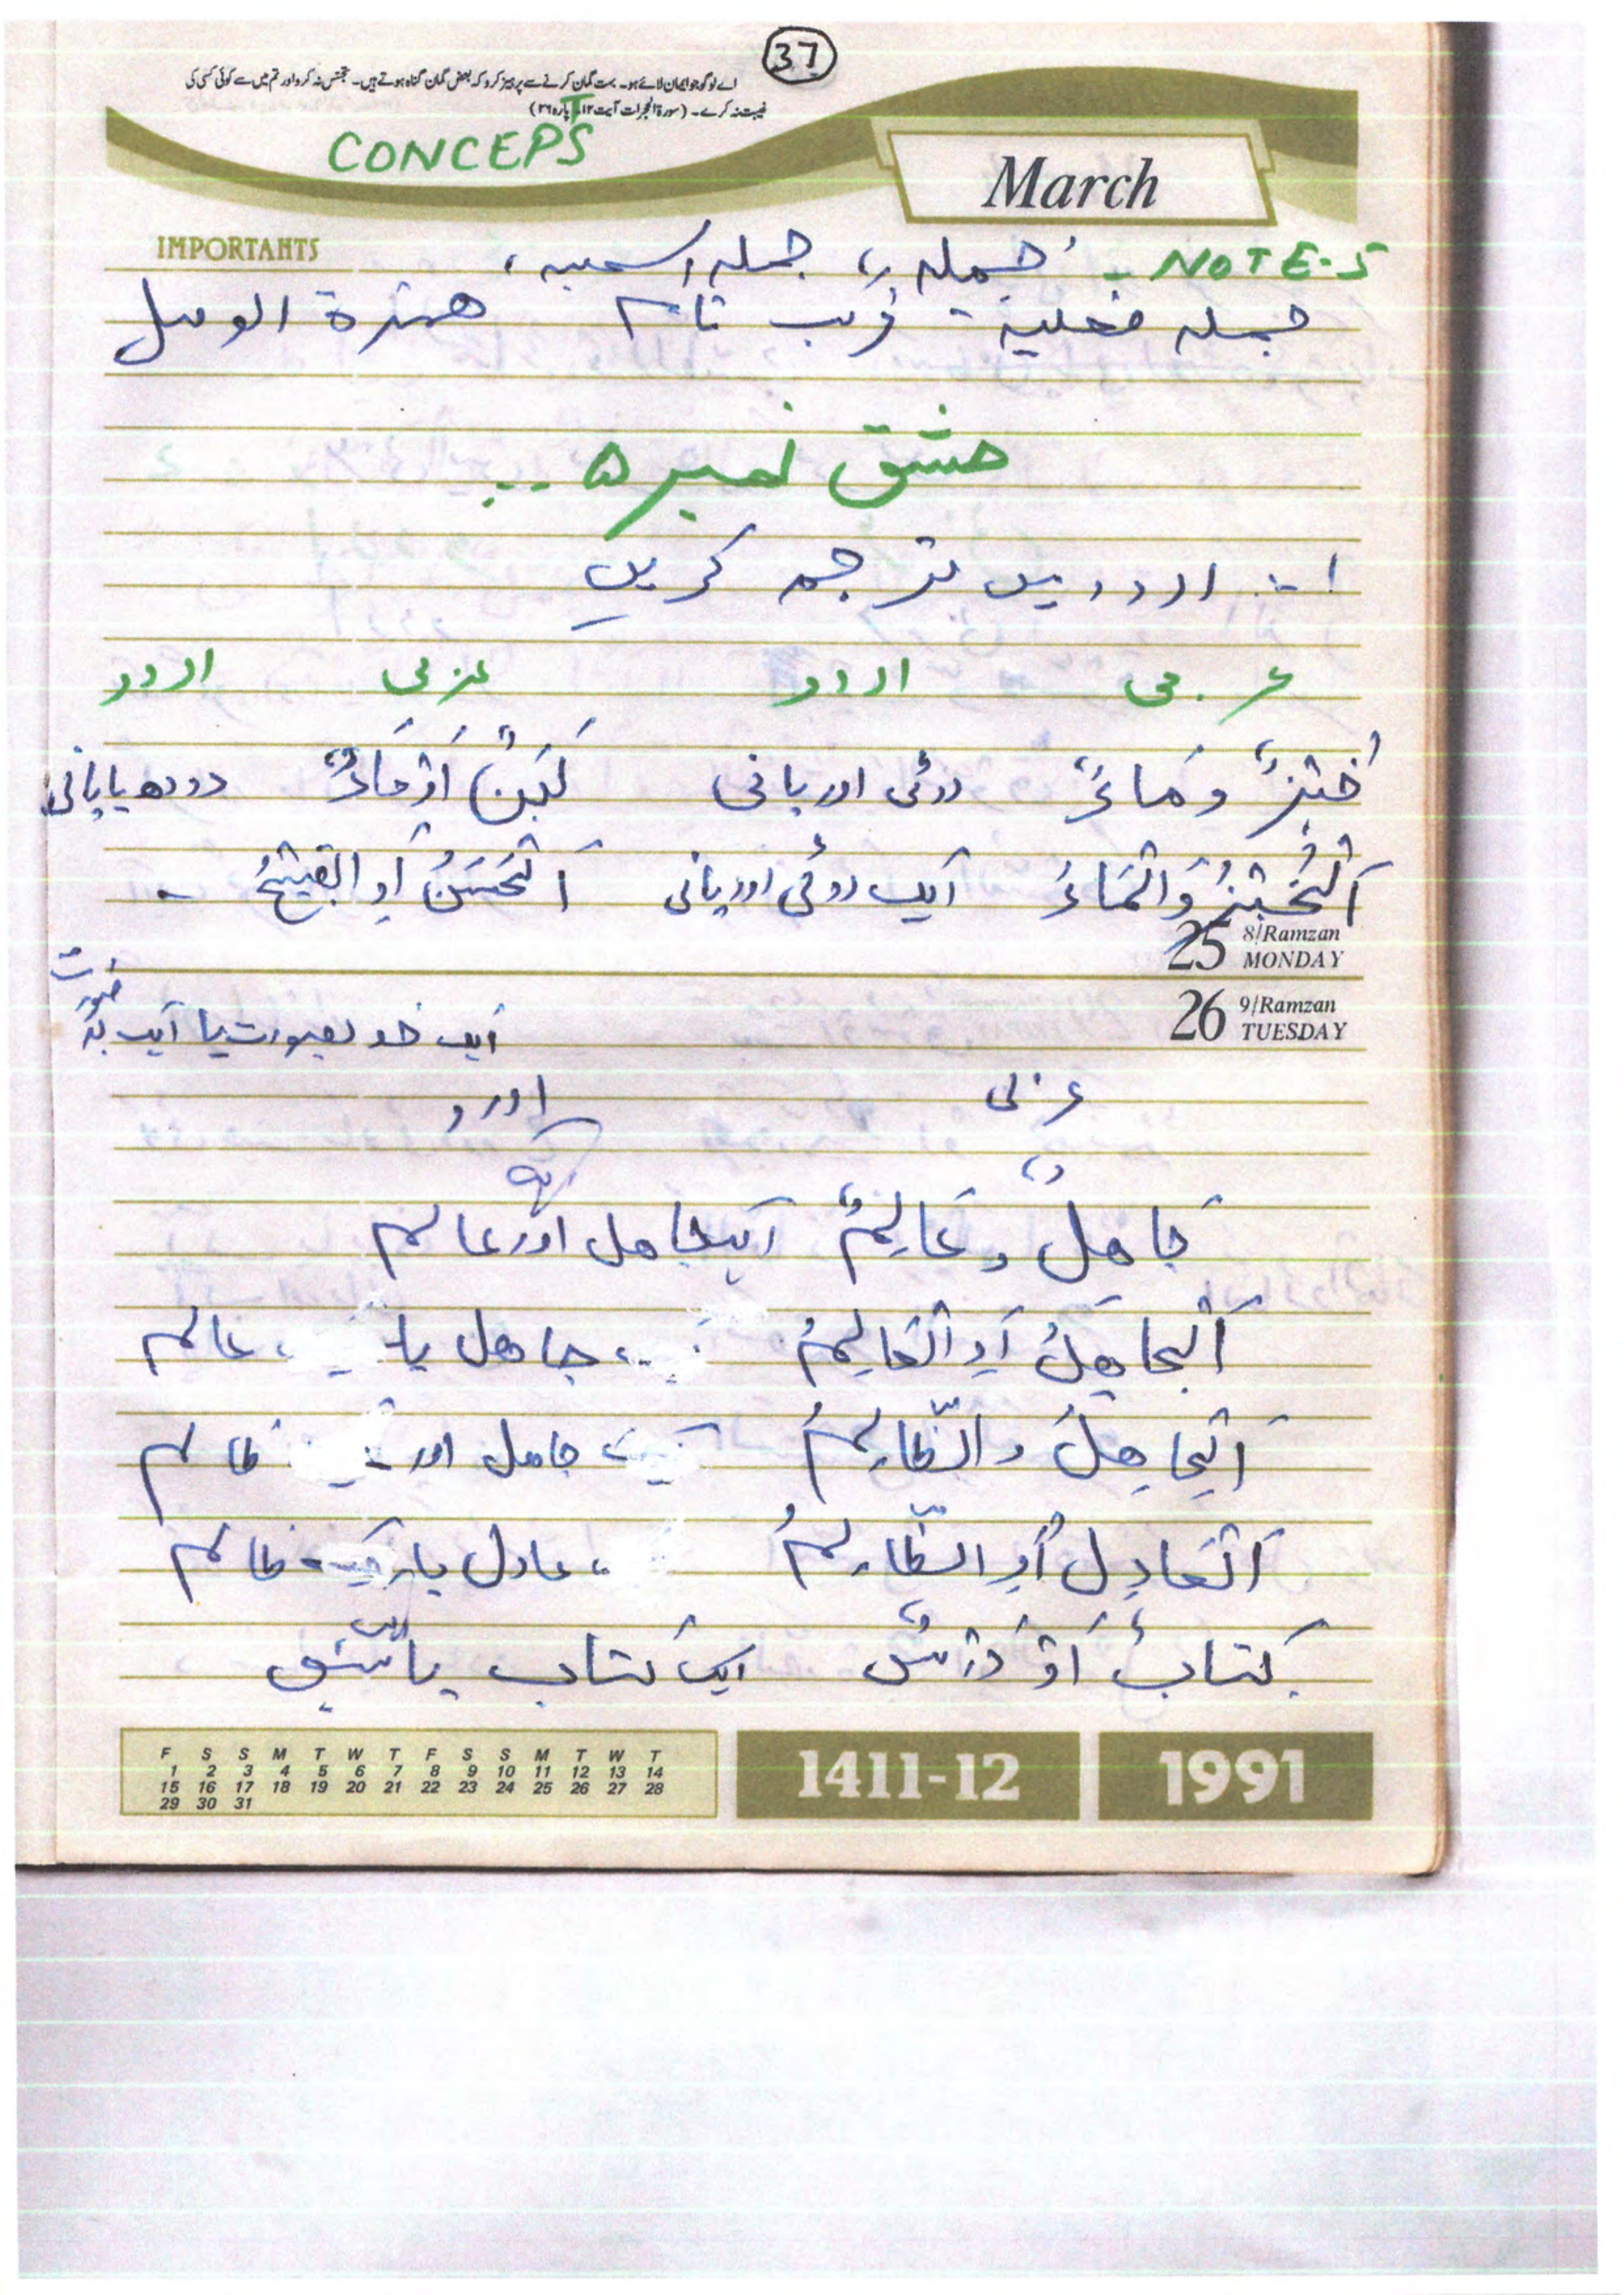 37
اے لوگو جو ایمان لائے ہو۔ بہت گمان کرنے سے پرہیز کرو کہ بعض گمان گناہ ہوتے ہیں۔ تجسس نہ کرو اور تم میں سے کوئی کسی کی
غیبت نہ کرے۔ (سورة الحجرات آیت ۱۲۔ پارہ ۲۶)
CONCEPTS
March
IMPORTANTS
NOTE-5 - جملہ، جملہ اسمیہ،
جملہ فعلیہ - مرکب تام ھمزة الوصل
مشق نمبر ۵
۱:- اردو میں ترجمہ کریں
عربی اردو عربی اردو
خُبْزٌ وَمَاءٌ روٹی اور پانی لَبَنٌ اَوْ مَاءٌ دودھ یا پانی
اَلْخُبْزُ وَالْمَاءُ ایک روٹی اور پانی اَلْحَسَنُ اَوِ الْقَبِيْحُ -
25 8/Ramzan MONDAY
26 9/Ramzan TUESDAY
ایک خوبصورت یا ایک بدصورت
عربی اردو
جَاهِلٌ وَعَالِمٌ ایک جاهل اور ایک عالم
اَلْجَاهِلُ اَوِ الْعَالِمُ جاهل یا عالم
اَلْجَاهِلُ وَالظَّالِمُ جاهل اور ظالم
اَلْعَادِلُ اَوِ الظَّالِمُ عادل یا ظالم
كِتَابٌ اَوْ دَرْسٌ ایک کتاب یا ایک سبق
F S S M T W T F S S M T W T
1 2 3 4 5 6 7 8 9 10 11 12 13 14
15 16 17 18 19 20 21 22 23 24 25 26 27 28
29 30 31
1411-12
1991